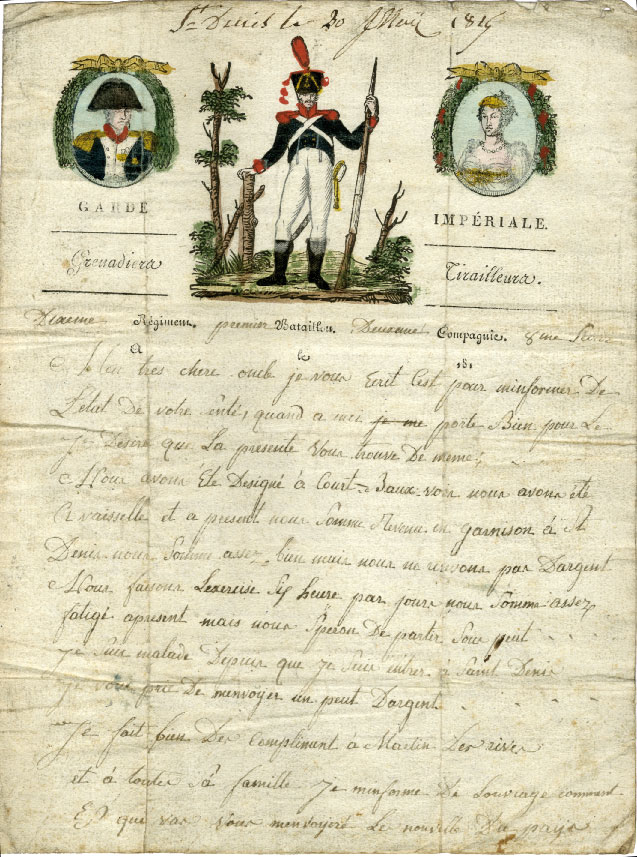 St Denis le 20 1813
GARDE IMPÉRIALE.
Grenadiers Tirailleurs.
Dixieme Régiment. premier Bataillon. Deuxieme Compagnie. 8me
A le 181
Mon tres chere oncle je vous Ecrit Cest pour minformer De
Letat de votre senté, quand a moi je me porte Bien pour Le
je Désire que La presente Vous trouve De meme;
Nous avons Ete Designé à nous avons été
A vaisselle et a present nous Somme Revenu en garnison à St
Denis nous Somme assez bien mais nous ne recevons pas Dargent
Nous faisons Lexercise Six heure par jours nous Somme assez
fatigé apresent mais nous Speron De partir Sous peut
je Suis malade Depuis que je Suis entrer à Saint Denis
je vous prie De menvoyer un peut Dargent
Je fait bien Des Compliment à Martin Des rives
et à toutes Sa famille je minforme De Louvrage comment
Et que vas Vous menvoyere Le nouvelle Du pays